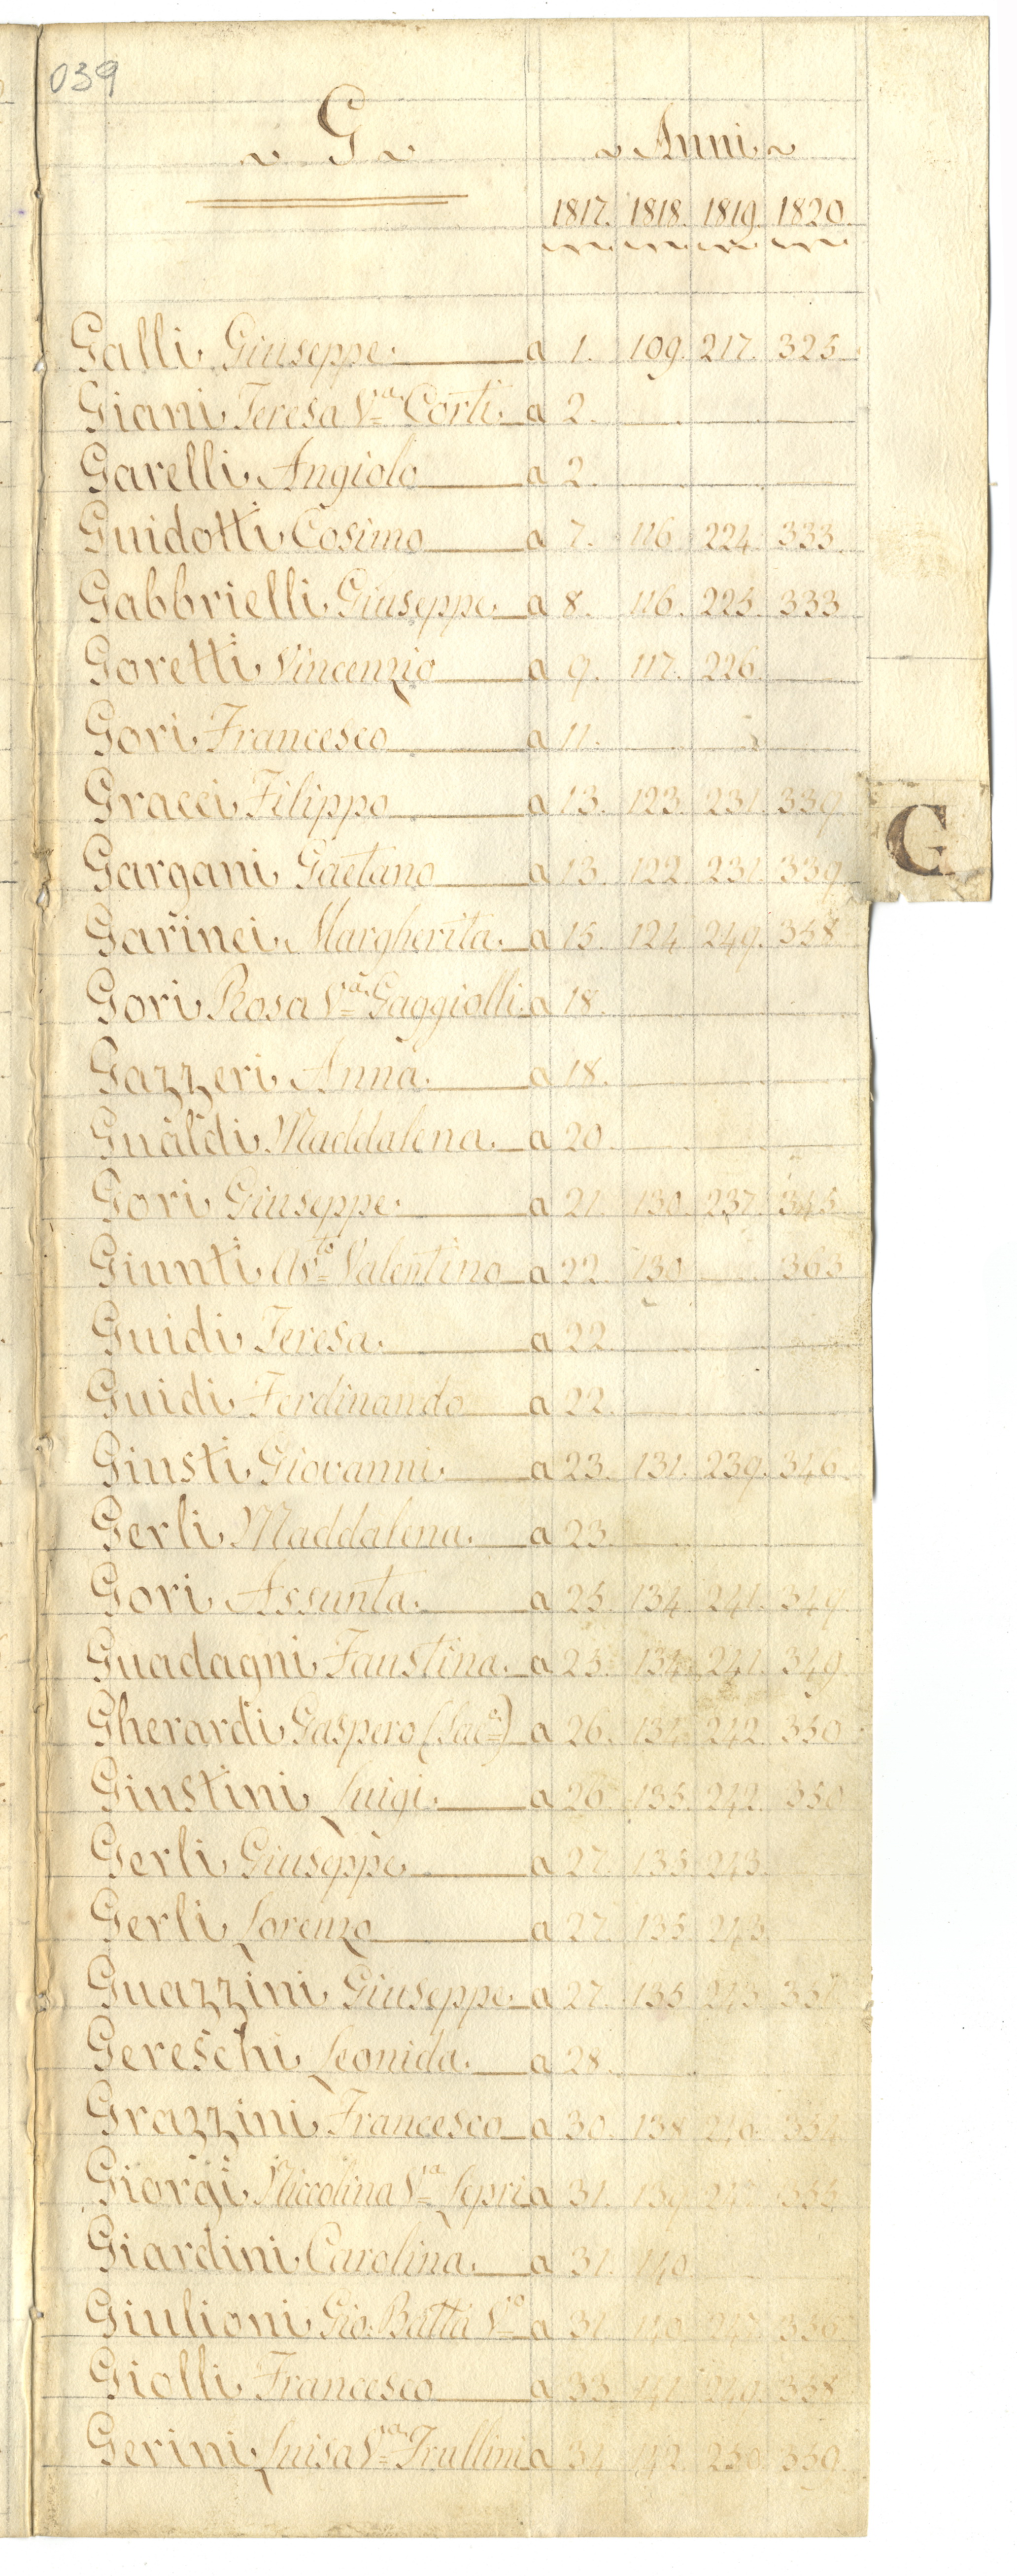 039
G
Anni
1817. 1818. 1819. 1820.
Galli Giuseppe a 1. 109. 217. 325.
Giani Teresa V.a Corti a 2.
Garelli Angiolo a 2.
Guidotti Cosimo a 7. 116. 224. 333.
Gabbrielli Giuseppe a 8. 116. 225. 333
Goretti Vincenzio a 9. 117. 226.
Gori Francesco a 11.
Gracci Filippo a 13. 123. 231. 339.
Gargani Gaetano a 13. 122. 231. 339.
Garinei Margherita a 15. 124. 249. 358.
Gori Rosa V.a Gaggiolli a 18.
Gazzeri Anna a 18.
Gualdi Maddalena a 20.
Gori Giuseppe a 21. 130. 237. 345.
Giunti Valentino a 22. 130. 363
Guidi Teresa a 22.
Guidi Ferdinando a 22.
Giusti Giovanni a 23. 131. 239. 346.
Gerli Maddalena a 23.
Gori Assunta a 25. 134. 241. 349.
Guadagni Faustina a 25. 134. 241. 349.
Gherardi Gaspero (Sac.e) a 26. 134. 242. 350.
Giustini Luigi a 26. 135. 242. 350
Gerli Giuseppe a 27. 135. 243.
Gerli Lorenzo a 27. 135. 243.
Guazzini Giuseppe a 27. 135. 243. 351.
Gereschi Leonida a 28.
Grazzini Francesco a 30. 138. 246. 354.
Giorgi Niccolina V.a Lepri a 31. 139. 355.
Giardini Carolina a 31. 140.
Giulioni Gio. Batta a 31. 140. 247. 356
Giolli Francesco a 33. 141. 249. 358.
Gerini Luisa V.a Trullini a 34. 142. 250.
G